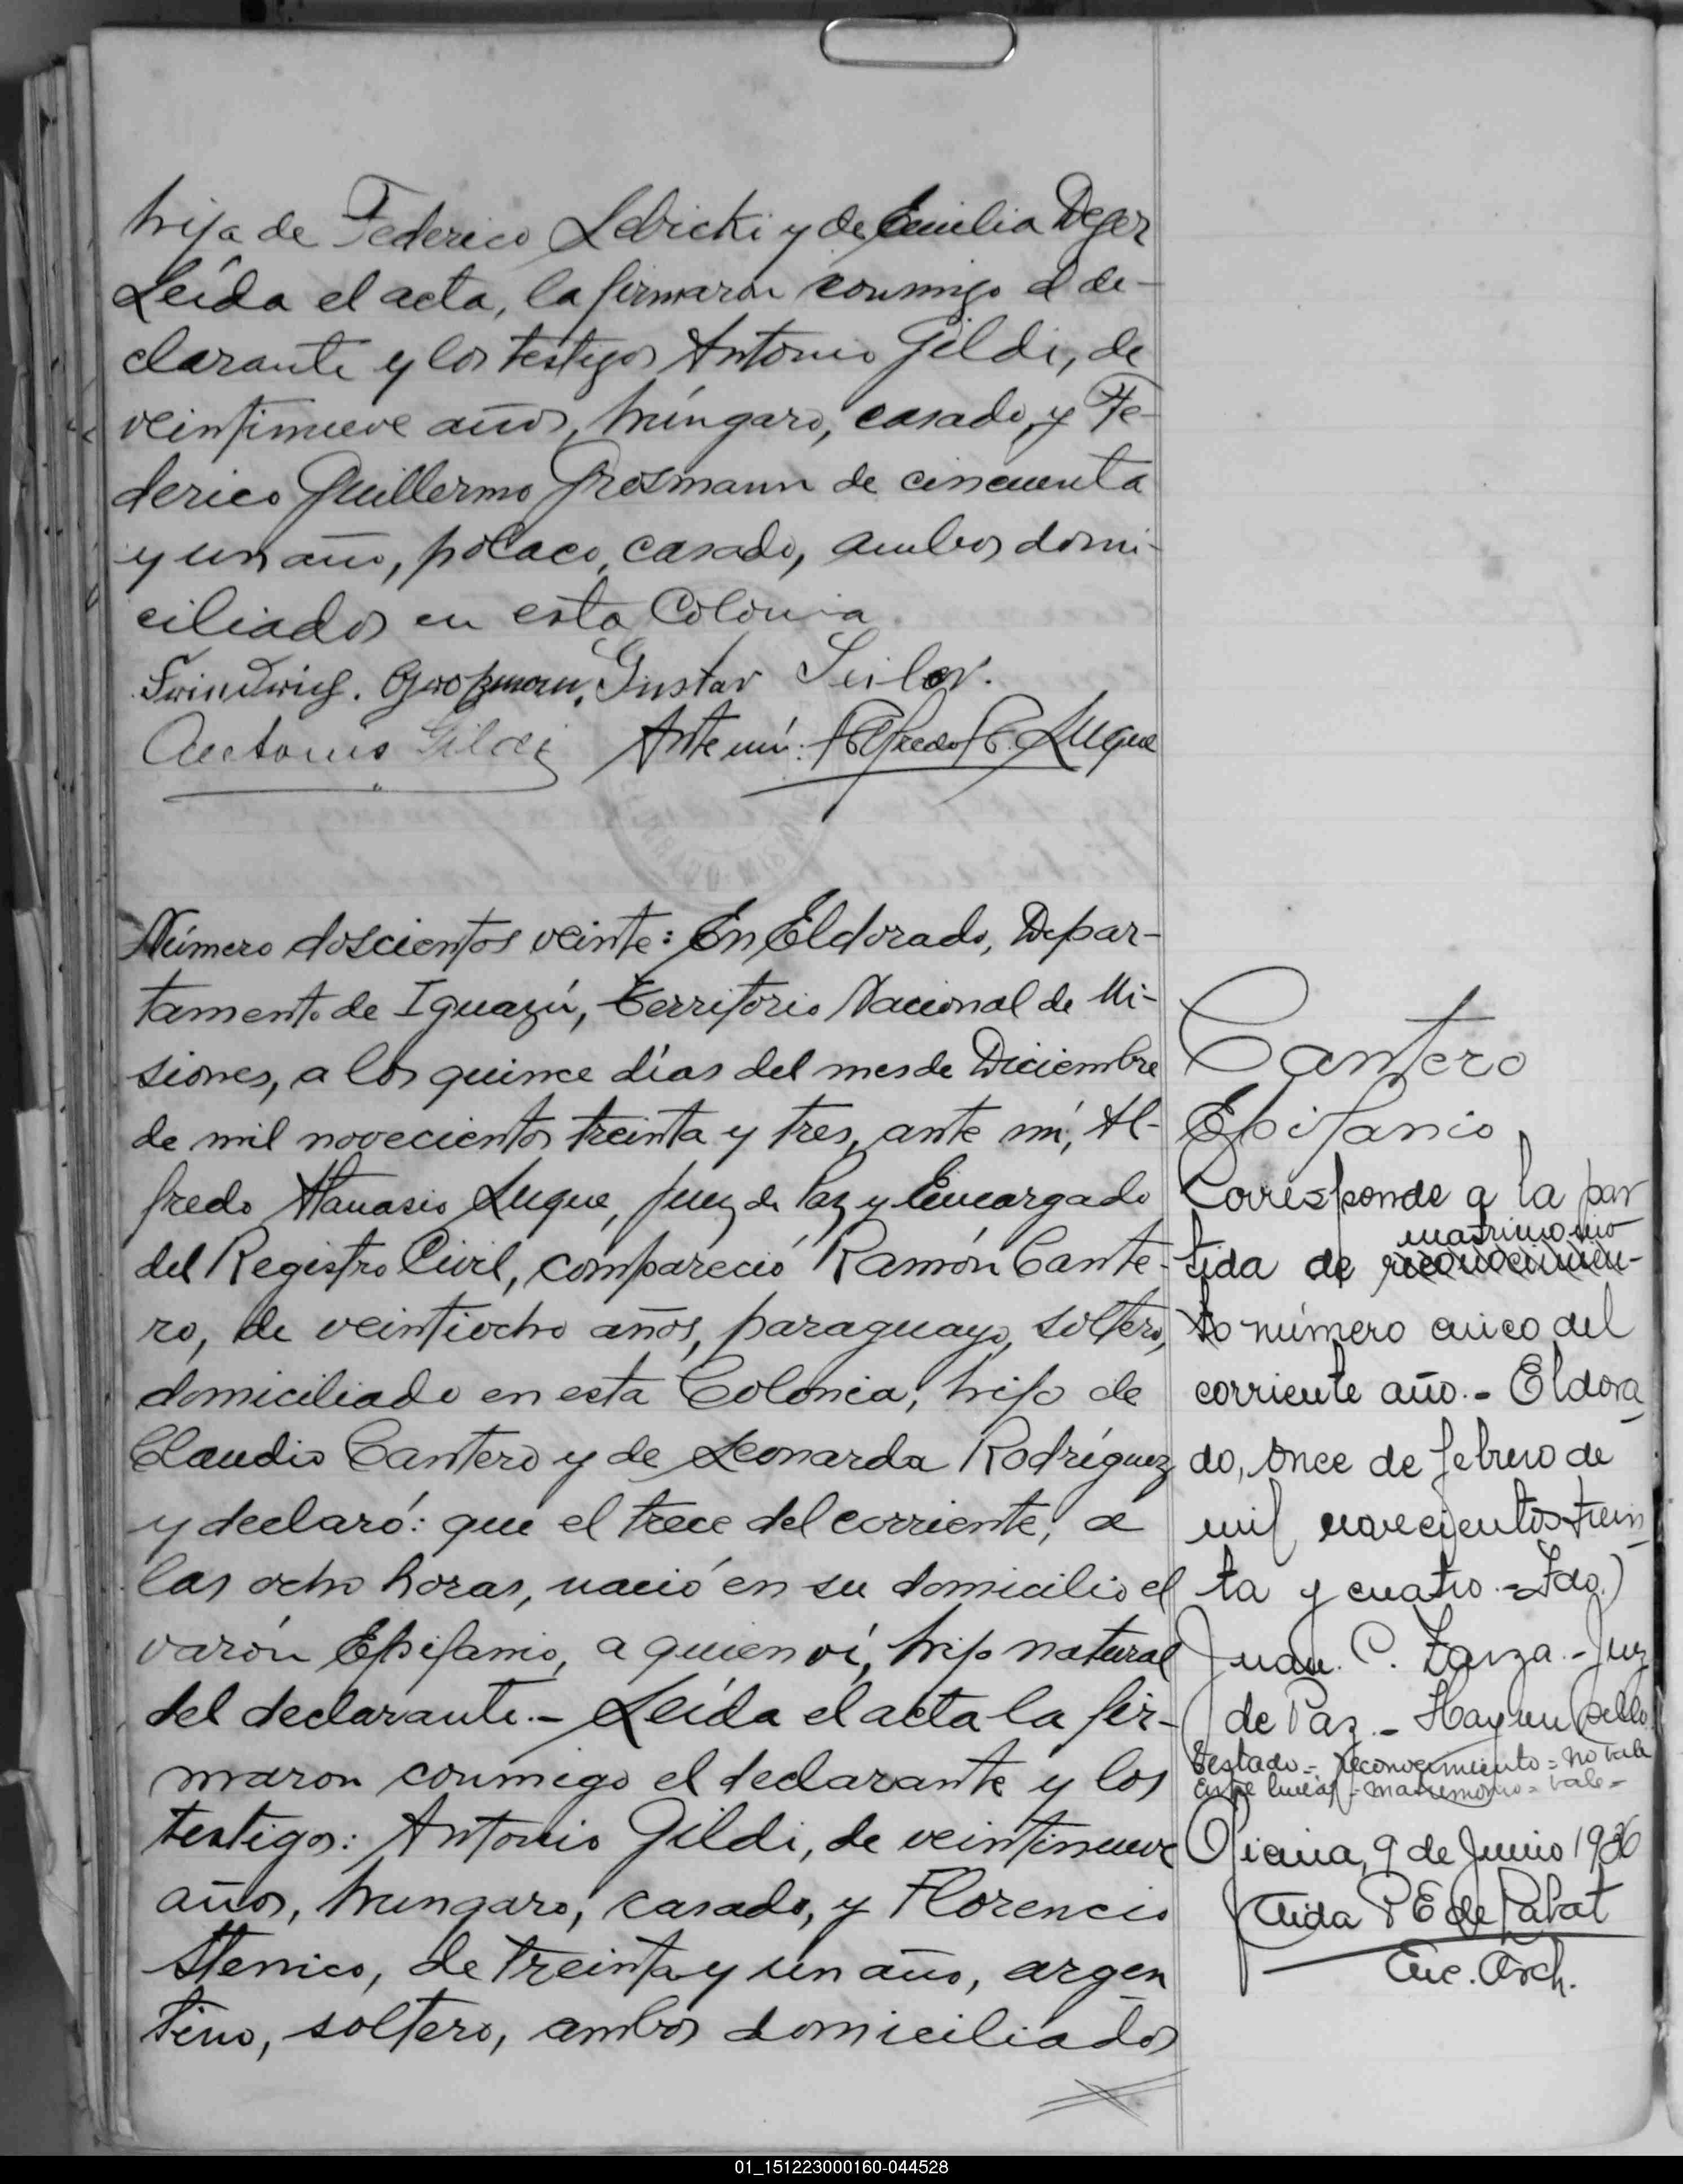 hija de Federico Lebicki y de Emilia Deger
Leída el acta, la firmaron conmigo el de-
clarante y los testigos Antonio Gildi, de
veintinueve años, húngaro, casado, y Fe-
derico Guillermo Grosmann de cincuenta
y un año, polaco, casado, ambos domi-
ciliados en esta Colonia.
Gustav Seiler.
Antonio Gildi Ante mí: Alfredo A. Luque
Número doscientos veinte: En Eldorado, Depar-
tamento de Iguazú, Territorio Nacional de Mi-
siones, a los quince días del mes de Diciembre
de mil novecientos treinta y tres, ante mí, Al-
fredo Atanasio Luque, Juez de Paz y Encargado
del Registro Civil, compareció Ramón Cante-
ro, de veintiocho años, paraguayo, soltero,
domiciliado en esta Colonia, hijo de
Claudio Cantero y de Leonarda Rodríguez
y declaró: que el trece del corriente, a
las ocho horas, nació en su domicilio el
varón Epifanio, a quien ví, hijo natural
del declarante.- Leída el acta la fir-
maron conmigo el declarante y los
testigos: Antonio Gildi, de veintinueve
años, hungaro, casado, y Florencio
de treinta y un año, argen
tino, soltero, ambos domiciliados
Cantero
Epifanio
Corresponde a la par
matrimonio
tida de reconocimien-
to número cinco del
corriente año.- Eldora
do, once de febrero de
mil novecientos trein
ta y cuatro.- Fdo.)
Juan C. Zarza.- Juez
de Paz.- Hay un sello
Testado = reconocimiento = no vale
Entre lineas = matrimonio = vale =
Oficina, 9 de Junio 1936
Aida P E de
Enc. Arch.
01_151223000160-044528